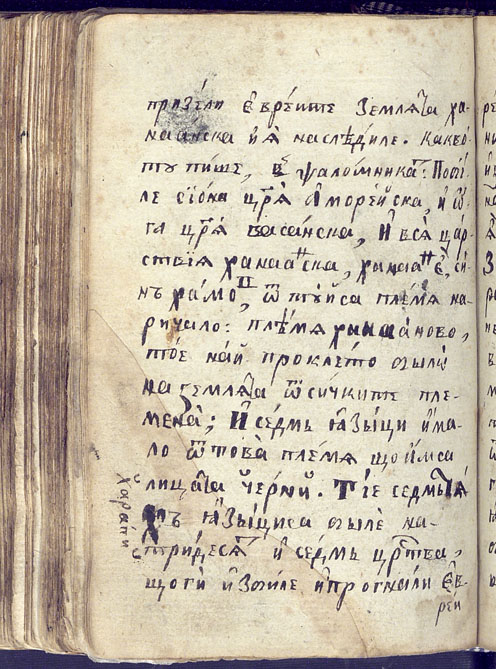 призели Еврейте Землята ха-
наанска и я наследиле. какво-
то пише, в ѱаломника: Поби-
ле сиона цр҃я Аморейска, и ѡ-
га цр҃я васанска, И вся цар-
ствия ханаанска, ханаан е, си-
нъ хамо, ѿ туйса племя на-
ричало: племя ханааново,
тое най проклето было
на землята ѿ сичките пле-
мена; И седмь ꙗзыци има-
ло ѿ това племя що имса
лицата черни. Тїе седмыя
тъ ꙗзыциса быле на-
тридесят и седмь цр҃тва,
щоги избиле и прогнали Ев-
реи
харапи